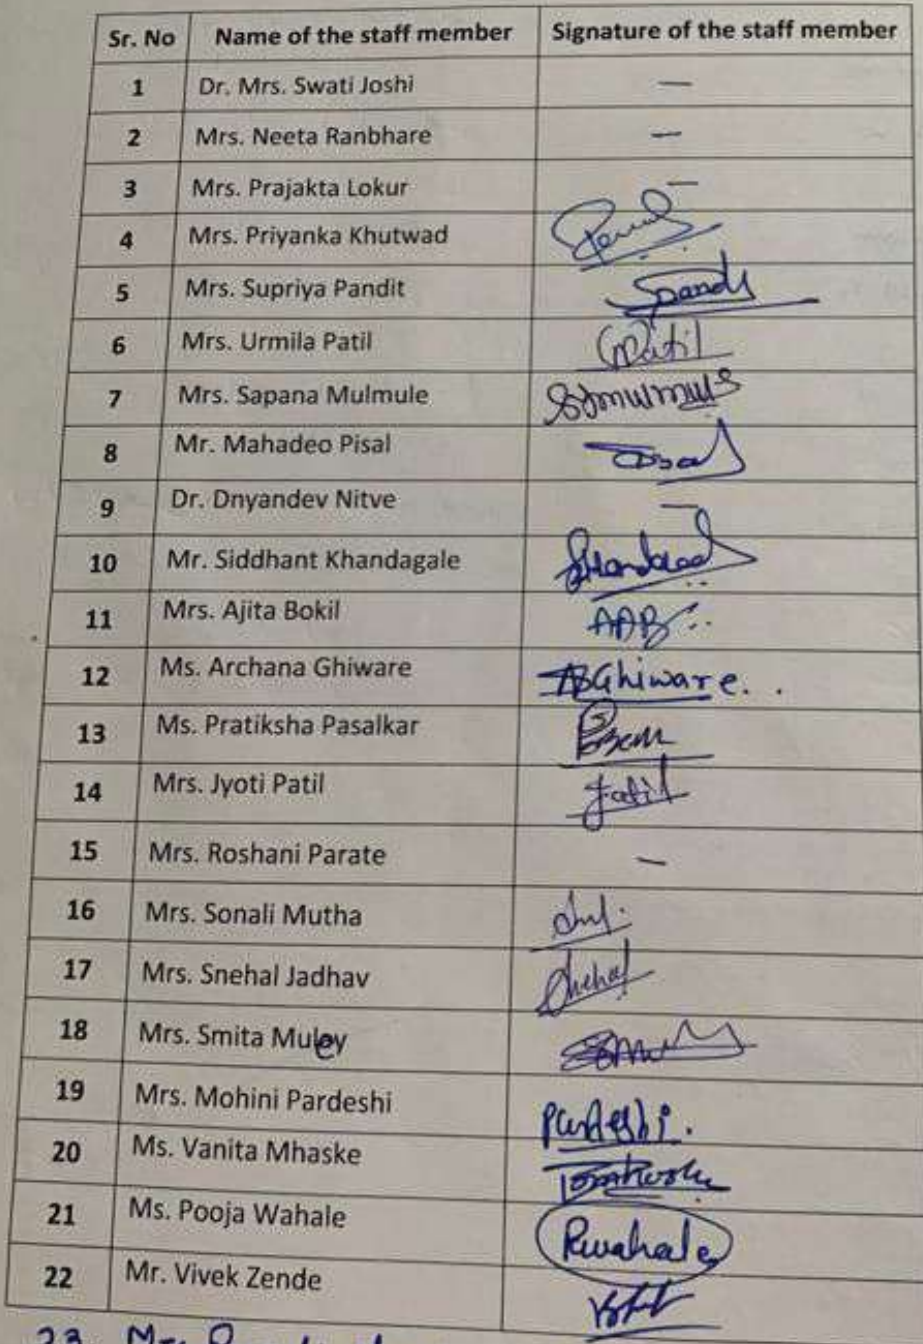 Sr. No Name of the staff member Signature of the staff member
1 Dr. Mrs. Swati Joshi —
2 Mrs. Neeta Ranbhare —
3 Mrs. Prajakta Lokur —
4 Mrs. Priyanka Khutwad
5 Mrs. Supriya Pandit
6 Mrs. Urmila Patil Patil
7 Mrs. Sapana Mulmule
8 Mr. Mahadeo Pisal
9 Dr. Dnyandev Nitve —
10 Mr. Siddhant Khandagale
11 Mrs. Ajita Bokil
12 Ms. Archana Ghiware ABGhiware..
13 Ms. Pratiksha Pasalkar
14 Mrs. Jyoti Patil
15 Mrs. Roshani Parate —
16 Mrs. Sonali Mutha
17 Mrs. Snehal Jadhav Snehal
18 Mrs. Smita Muley
19 Mrs. Mohini Pardeshi Pardeshi.
20 Ms. Vanita Mhaske
21 Ms. Pooja Wahale Pwahale
22 Mr. Vivek Zende
23